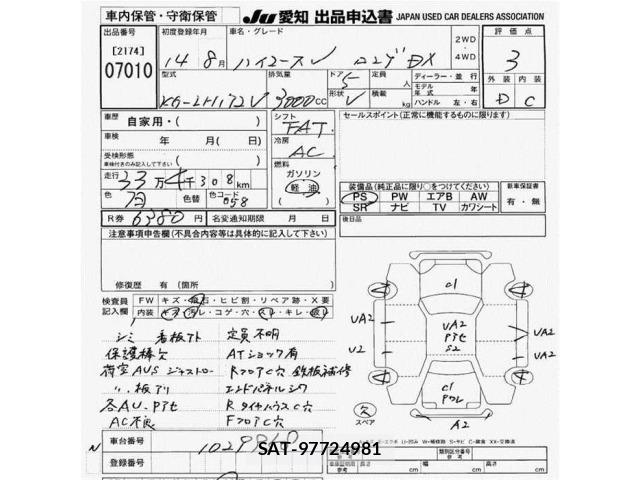 車内保管・守衛保管 JU 愛知 出品申込書 JAPAN USED CAR DEALERS ASSOCIATION
出品番号 初度登録年月 車名・グレード 2WD・4WD 評価点
[2174] 07010 14年8月 ハイエースV ロングDX 3
型式 排気量 ドア 5 定員 人 ディーラー・並行 外装 内装
KG-LH172V 3000cc 形状 V 積載 kg モデル年式 年 ハンドル 左・右 D C
車歴 自家用・( ) シフト FAT セールスポイント(正常に機能するものに限ります)
車検 年 月( 日) 冷房 AC
受検形態 車検付きのみ記入して下さい ( ) 燃料 ガソリン
走行 33万4千308km 軽油 装備品(純正品に限り○をつけてください) 新車保証書
色 白 色替 色コード 058 ( ) PS PW エアB AW 有・無
SR ナビ TV カワシート
R券 6380円 名変通知期限 月 日 後日品
注意事項申告欄(不具合内容等は具体的に記入して下さい)
修復歴 有 (箇所 )
検査員記入欄 FW キズ・飛石・ヒビ割・リペア跡・X要
内装 キズ・汚レ・コゲ・穴・スレ・キレ・破レ
シミ 看板アト 定員不明
保護棒欠 ATショック有
荷室AUS ジャストロー RフロアC穴 鉄板補修
〃 板アリ エンドパネルシワ
各AU、Pアセ RタイヤハウスC穴
AC不良 FフロアC穴
C1
UA2 UA2 UA2
Pアセ
U2 S2 UA2
C1
Pワレ
欠
スペア A2
車台番号
登録番号
SAT-97724981
類別区分番号
参考 長さ cm 幅 cm 高さ cm